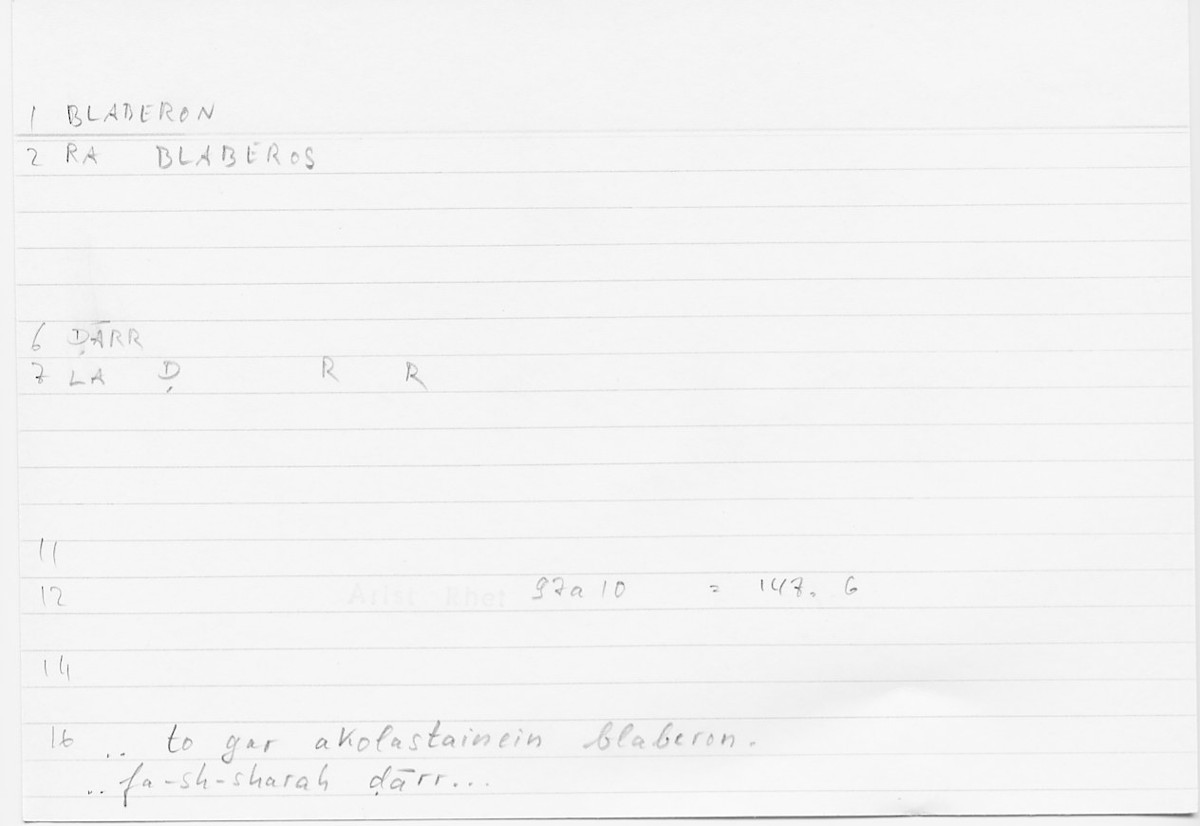 1 BLABERON
2 RA BLABEROS
6 ḌĀRR
7 LA Ḍ R R
11
12 Arist. Rhet 97a10 = 147. 6
14
16 .. to gar akolastainein blaberon.
.. fa-sh-sharah ḍārr...